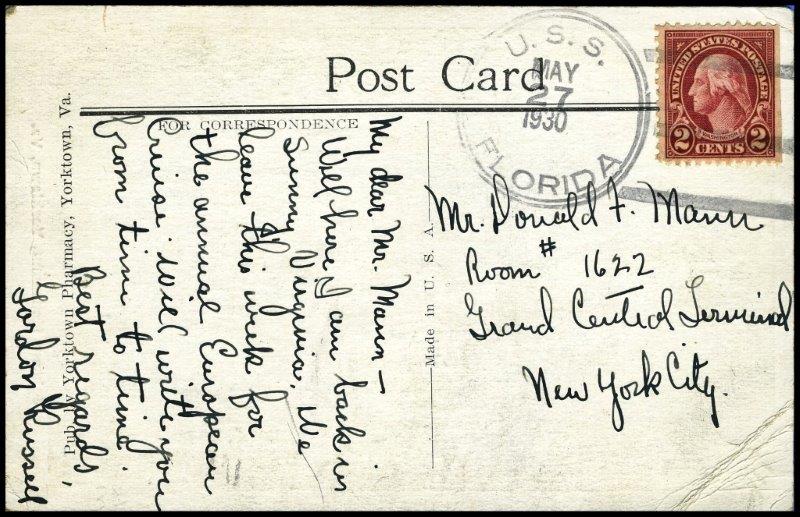 Post Card
U. S. S.
MAY
27
1930
FLORIDA
UNITED STATES POSTAGE
WASHINGTON
2 CENTS 2
FOR CORRESPONDENCE
My dear Mr. Mann —
Well here I am back in
Sunny Virginia. We
leave this week for
the annual European
Cruise. Will write you
from time to time.
Best regards,
Gordon Russell
Pub. by Yorktown Pharmacy, Yorktown, Va.
Made in U. S. A.
Mr. Donald F. Mann
Room # 1622
Grand Central Terminal
New York City.